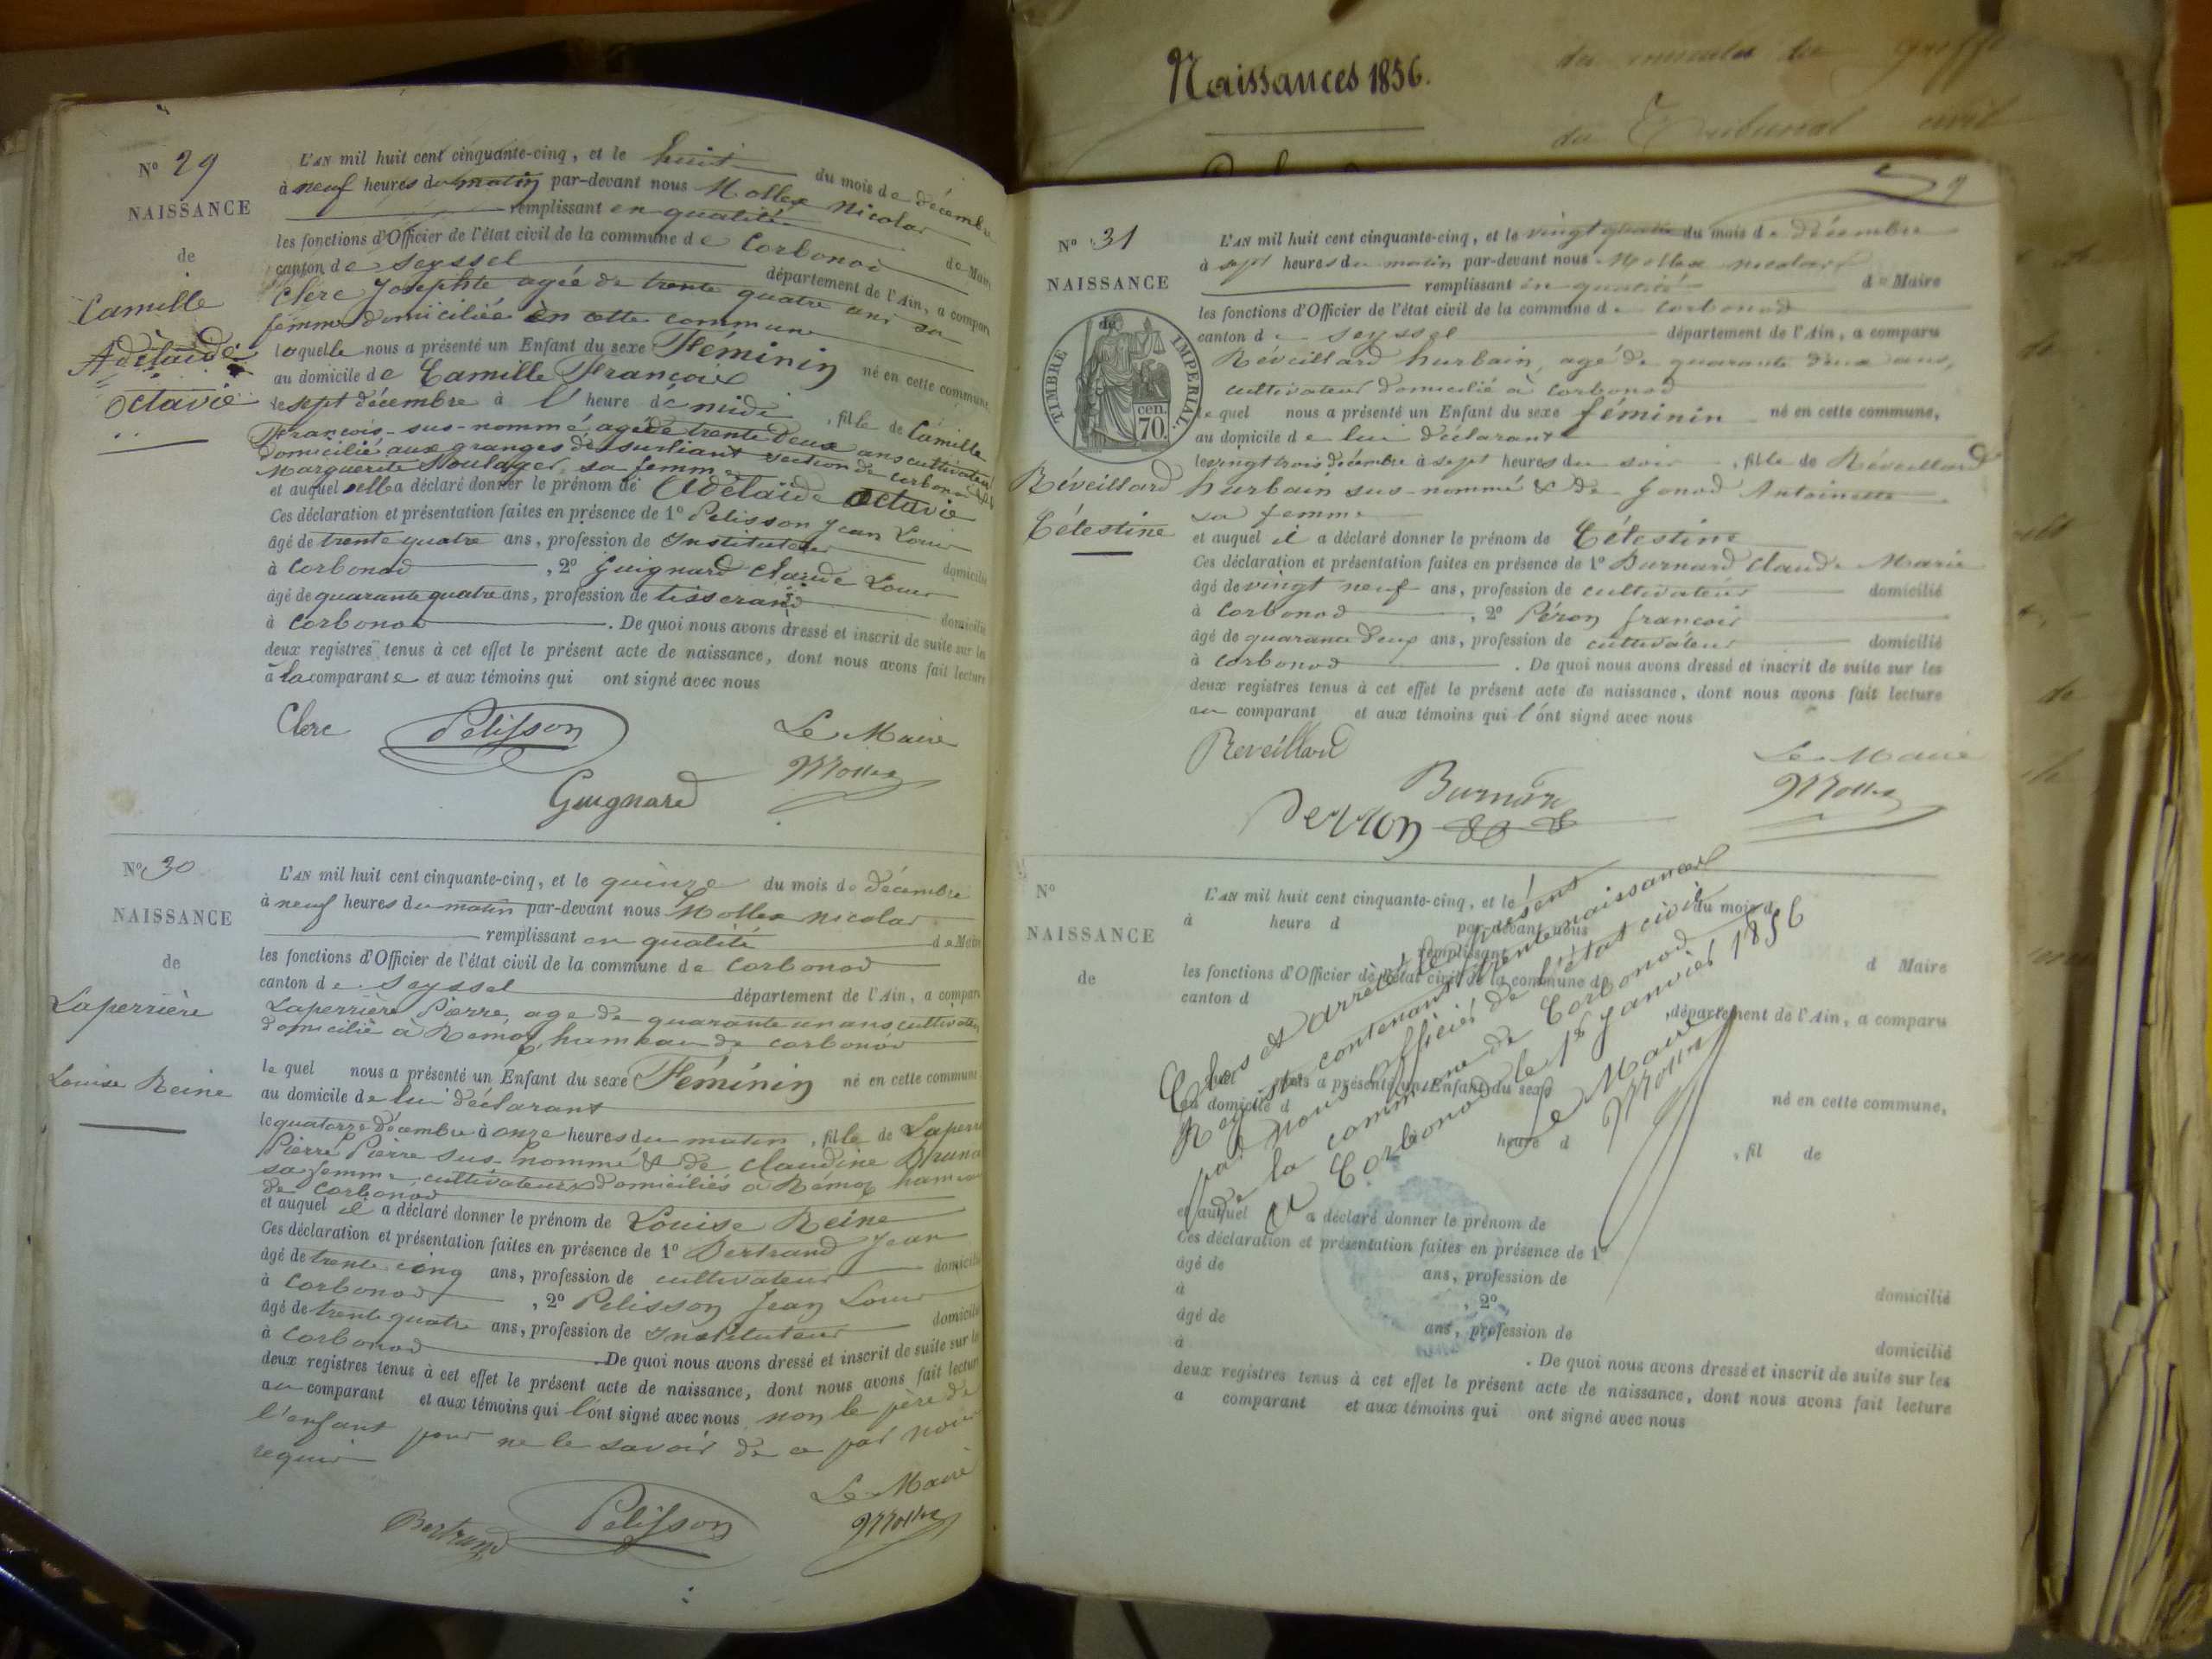 Naissances 1856.
du Tribunal civil
N° 29
NAISSANCE
de
Camille
Adélaïde
Octavie
L'AN mil huit cent cinquante-cinq, et le huit du mois de décembre
à neuf heures du matin par-devant nous Mollex Nicolas
remplissant en qualité de Maire
les fonctions d'Officier de l'état civil de la commune de Corbonod
canton de Seyssel département de l'Ain, a comparu
Clerc Josephte agée de trente quatre ans sa
femme domiciliée en cette commune
laquelle nous a présenté un Enfant du sexe Féminin né en cette commune,
au domicile de Camille François
le sept décembre à l' heure de midi, fille de Camille
François sus-nommé, agé de trente deux ans cultivateur
domicilié aux granges de surliant section de Corbonod
Marguerite sa femme
et auquel elle a déclaré donner le prénom de Adélaïde Octavie
Ces déclaration et présentation faites en présence de 1° Pelisson Jean Louis
âgé de trente quatre ans, profession de Instituteur domicilié
à Corbonod, 2° Guignard Claude Louis
âgé de quarante quatre ans, profession de tisserand domicilié
à Corbonod. De quoi nous avons dressé et inscrit de suite sur les
deux registres tenus à cet effet le présent acte de naissance, dont nous avons fait lecture
à la comparante et aux témoins qui ont signé avec nous
Clerc Pelisson Le Maire
Guignard Mollex
N° 30
NAISSANCE
de
Laperrière
Louise Reine
L'AN mil huit cent cinquante-cinq, et le quinze du mois de décembre
à neuf heures du matin par-devant nous Mollex Nicolas
remplissant en qualité de Maire
les fonctions d'Officier de l'état civil de la commune de Corbonod
canton de Seyssel département de l'Ain, a comparu
Laperrière Pierre, age de quarante un ans cultivateur
domicilié à Rémoz, hameau de corbonod
le quel nous a présenté un Enfant du sexe Féminin né en cette commune
au domicile de lui déclarant
le quatorze décembre à onze heures du matin, fille de Laperr
Pierre Pierre sus-nommé & de Claudine Brun
sa femme, cultivateurs domiciliés à Rémoz hameau
de Corbonod
et auquel il a déclaré donner le prénom de Louise Reine
Ces déclaration et présentation faites en présence de 1° Bertrand Jean
âgé de trente cinq ans, profession de cultivateur domicilié
à Corbonod, 2° Pelisson Jean Louis
âgé de trente quatre ans, profession de Instituteur domicilié
à Corbonod. De quoi nous avons dressé et inscrit de suite sur les
deux registres tenus à cet effet le présent acte de naissance, dont nous avons fait lecture
au comparant et aux témoins qui l'ont signé avec nous non le père de
l'enfant pour ne le savoir de ce par nous
requis
Le Maire
Bertrand Pelisson Mollex
9
N° 31
NAISSANCE
de
TIMBRE IMPERIAL.
70 cen.
Réveillard
Célestine
L'AN mil huit cent cinquante-cinq, et le vingt quatre du mois de décembre
à sept heures du matin par-devant nous Mollex Nicolas
remplissant en qualité de Maire
les fonctions d'Officier de l'état civil de la commune de corbonod
canton de Seyssel département de l'Ain, a comparu
Réveillard hurbain, agé de quarante deux ans,
cultivateur domicilié à Corbonod
le quel nous a présenté un Enfant du sexe féminin né en cette commune,
au domicile de lui déclarant
le vingt trois décembre à sept heures du soir, fille de Réveillard
hurbain sus-nommé & de Gonod Antoinette
sa femme
et auquel il a déclaré donner le prénom de Célestine
Ces déclaration et présentation faites en présence de 1° Burnard Claude Marie
âgé de vingt neuf ans, profession de cultivateur domicilié
à Corbonod, 2° Péron françois
âgé de quarante deux ans, profession de cultivateur domicilié
à Corbonod. De quoi nous avons dressé et inscrit de suite sur les
deux registres tenus à cet effet le présent acte de naissance, dont nous avons fait lecture
au comparant et aux témoins qui l'ont signé avec nous
Reveillard Le Maire
Burnard Mollex
Perron
N°
NAISSANCE
de
L'AN mil huit cent cinquante-cinq, et le du mois d
à heure d par-devant nous
remplissant d Maire
les fonctions d'Officier de l'état civil de la commune d
canton d ,département de l'Ain, a comparu
quel nous a présenté un Enfant du sexe né en cette commune,
au domicile d
heure d , fil de
et auquel a déclaré donner le prénom de
Ces déclaration et présentation faites en présence de 1°
âgé de ans, profession de domicilié
à , 2°
âgé de ans, profession de domicilié
à . De quoi nous avons dressé et inscrit de suite sur les
deux registres tenus à cet effet le présent acte de naissance, dont nous avons fait lecture
a comparant et aux témoins qui ont signé avec nous
Clos et arrêté le présent
Registre contenant trente naissances
par nous officier de l'état civil
de la commune de Corbonod
A Corbonod le 1er Janvier 1856
Le Maire
Mollex